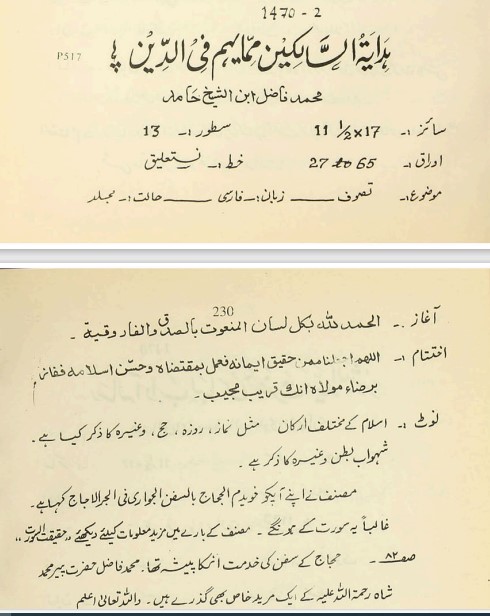 1470 - 2
ہدایۃ السالکین ممایہم فی الدین
P517
محمد فاضل ابن الشیخ حامد
سائز :- 11 1/2 x 17 سطور :- 13
اوراق :- 27 to 65 خط :- نستعلیق
موضوع :- تصوف —— زبان :- فارسی —— حالت :- مجلد
230
آغاز :- الحمد للہ بکل لسان المنعوت بالصدق والفاروقیۃ -
اختتام :- اللھم اجعلنا ممن حقیق ایمانہ فعمل بمقتضاہ وحسن اسلامہ ففاز
برضاء مولاہ انک قریب مجیب -
نوٹ :- اسلام کے مختلف ارکان مثل نماز، روزہ، حج، وغیرہ کا ذکر کیا ہے .
شہواب بطن وغیرہ کا ذکر ہے .
مصنف نے اپنے آپکو خویدم الحجاج بالسفن الجواری فی البحر الاجاج کہا ہے .
غالباً یہ سورت کے ہونگے . مصنف کے بارے میں مزید معلومات کیلئے دیکھئے "حقیقت السورت"
صفہ ۸۲ - حجاج کے سفن کی خدمت انکا پیشہ تھا . محمد فاضل حضرت پیر محمد
شاہ رحمۃ اللہ علیہ کے ایک مرید خاص بھی گذرے ہیں . واللہ تعالیٰ اعلم